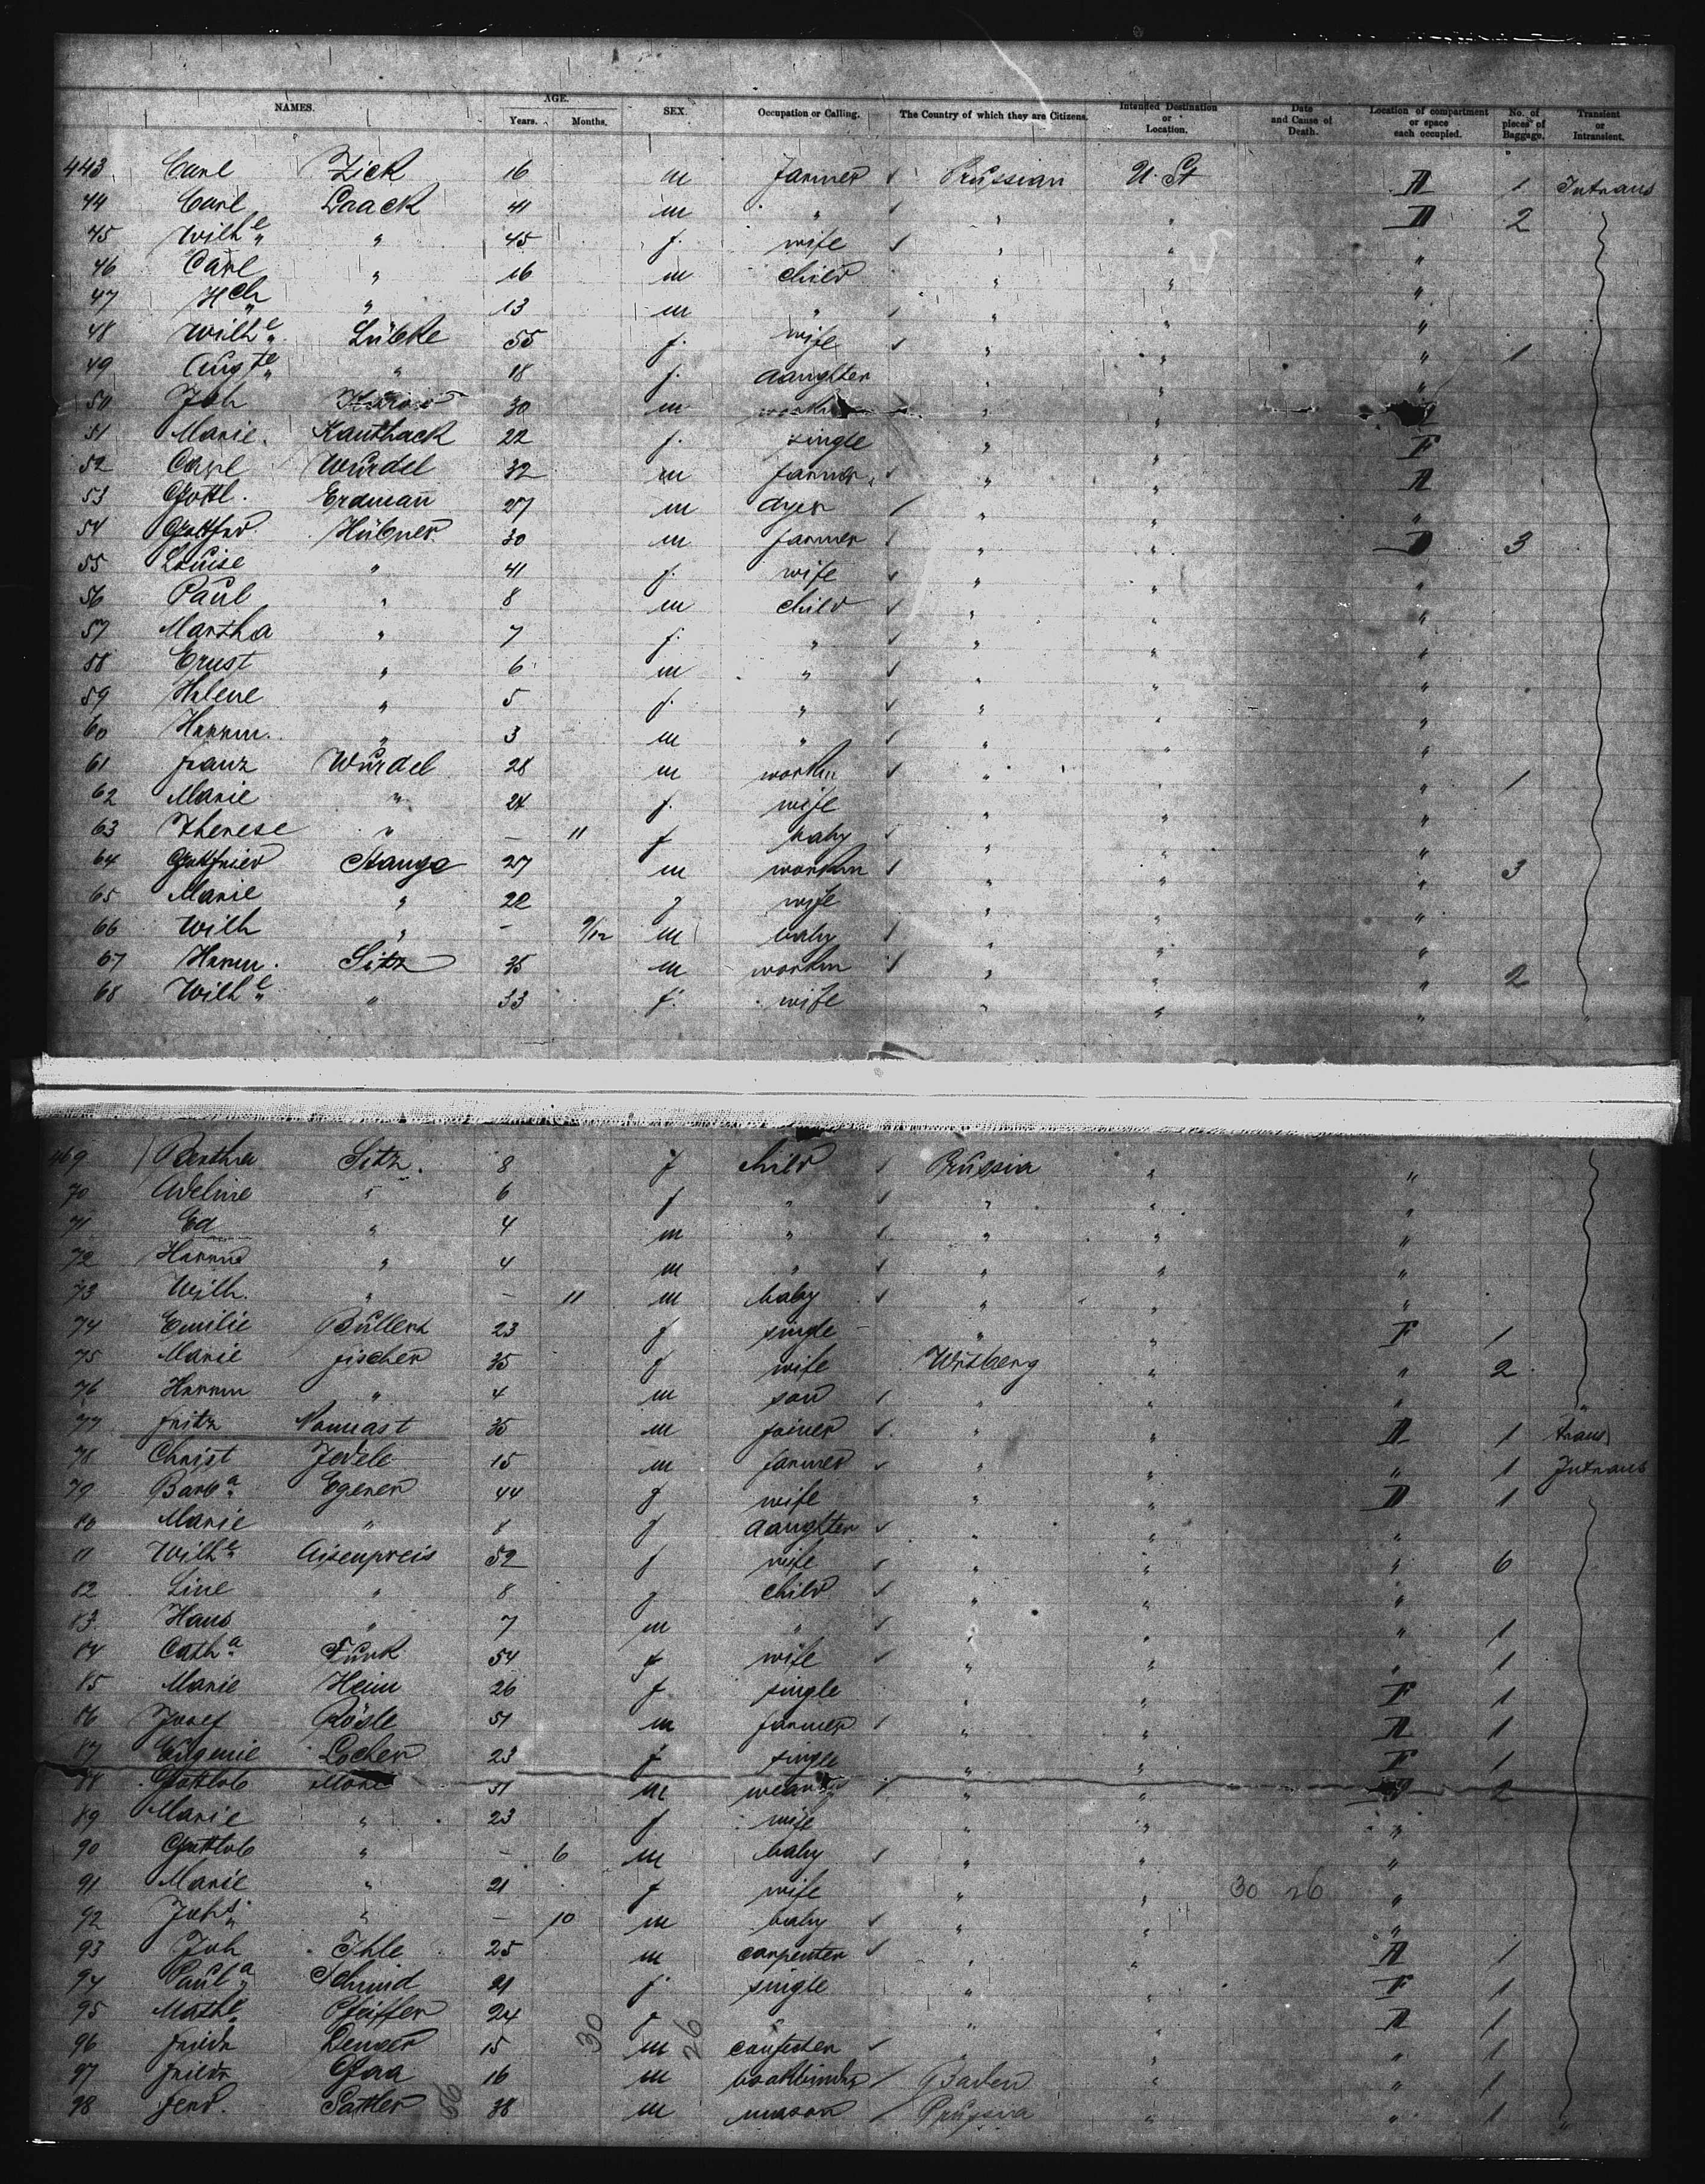 NAMES. AGE. Years. Months. SEX. Occupation or Calling. The Country of which they are Citizens. Intended Destination or Location. Date and Cause of Death. Location of compartment or space each occupied. No. of pieces of Baggage. Transient or Intransient.
443 Carl Zick 16 m farmer Prussian U. St 1 Intrans
44 Carl Laack 41 m " " " 2
45 Wilhe " 45 f. wife " " "
46 Carl " 16 m child " " "
47 Hch " 13 m " " " "
48 Wilhe Lübke 55 f. wife " " " 1
49 Auguste " 18 f. daughter " " "
50 Joh 30 m " "
51 Marie Kauthack 22 f. single " " F
52 Carl Würdel 32 m farmer " "
53 Gottl. Erdmañ 27 m dyer " " "
54 Gottfrd Hübner 30 m farmer " " 3
55 Louise " 41 f. wife " " "
56 Paul " 8 m child " " "
57 Martha " 7 f. " " " "
58 Ernst " 6 m " " " "
59 Helene " 5 f. " " " "
60 Herrm. " 3 m " " " "
61 Franz Würdel 28 m workm " " " 1
62 Marie " 24 f. wife " " "
63 Therese " – 11 f baby " " "
64 Gottfried Stange 27 m workm " " " 3
65 Marie " 22 f wife " " "
66 Wilh " – 9/12 m baby " " "
67 Herm. Sitz 35 m workm " " " 2
68 Wilhe " 33 f. wife " " "
469 Bertha Sitz. 8 f child Prussia " "
70 Adeline " 6 f " " " "
71 Ed " 4 m " " " "
72 " 4 m " " " "
73 Wilh. " – 11 m baby " " "
74 Emilie Büllert 23 f single " " F 1
75 Marie Fischer 35 f wife Wrtberg " " 2
76 Herrm " 4 m son " " "
77 Fritz 35 m joiner " " 1 trans
78 Christ Jedele 15 m farmer " " " 1 Intrans
79 Barba Egener 44 f wife " " 1
80 Marie " 8 f daughter " " "
81 Wilhe Aisenpreis 52 f wife " " " 6
82 Line " 8 f child " " "
83 Hans " 7 m " " " " 1
84 Catha Fünk 54 f wife " " " 1
85 Marie Heim 26 f single " " F 1
86 Josef Rösle 51 m farmer " " 1
87 Eugenie Locher 23 f single " " F 1
88 Gottlob 31 m " " 2
89 Marie " 23 f wife " " "
90 Gottlob " – 6 m baby " " "
91 Marie " 21 f wife " " 30 26 "
92 Johs " – 10 m baby " " "
93 Joh Ihle 25 m carpenter " " 1
94 Paula Schmid 21 f. single " " F 1
95 Mathe Pfeiffer 24 f " " " 1
96 Friedr 15 30 m 26 " " 1
97 Friedr 16 m bookbinder Baden " " 1
98 Ferd. Sattler 56 38 m mason Prussia " " 1 "